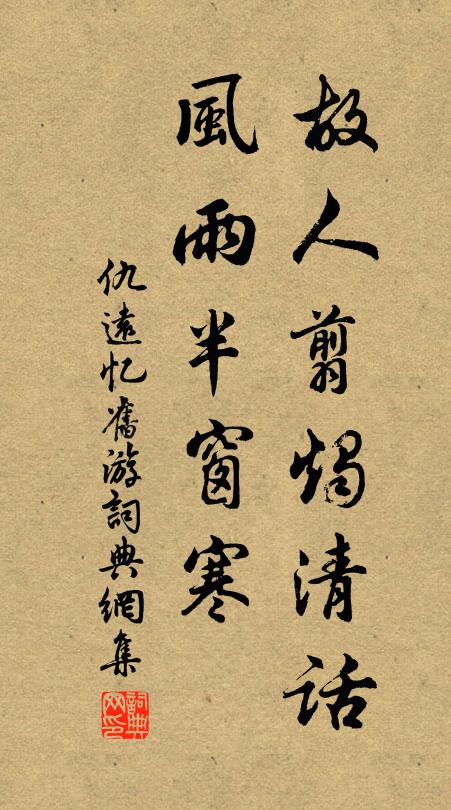 故人翦燭清話
風雨半窗寒
仇遠忆舊游詞典網集
詞典网印